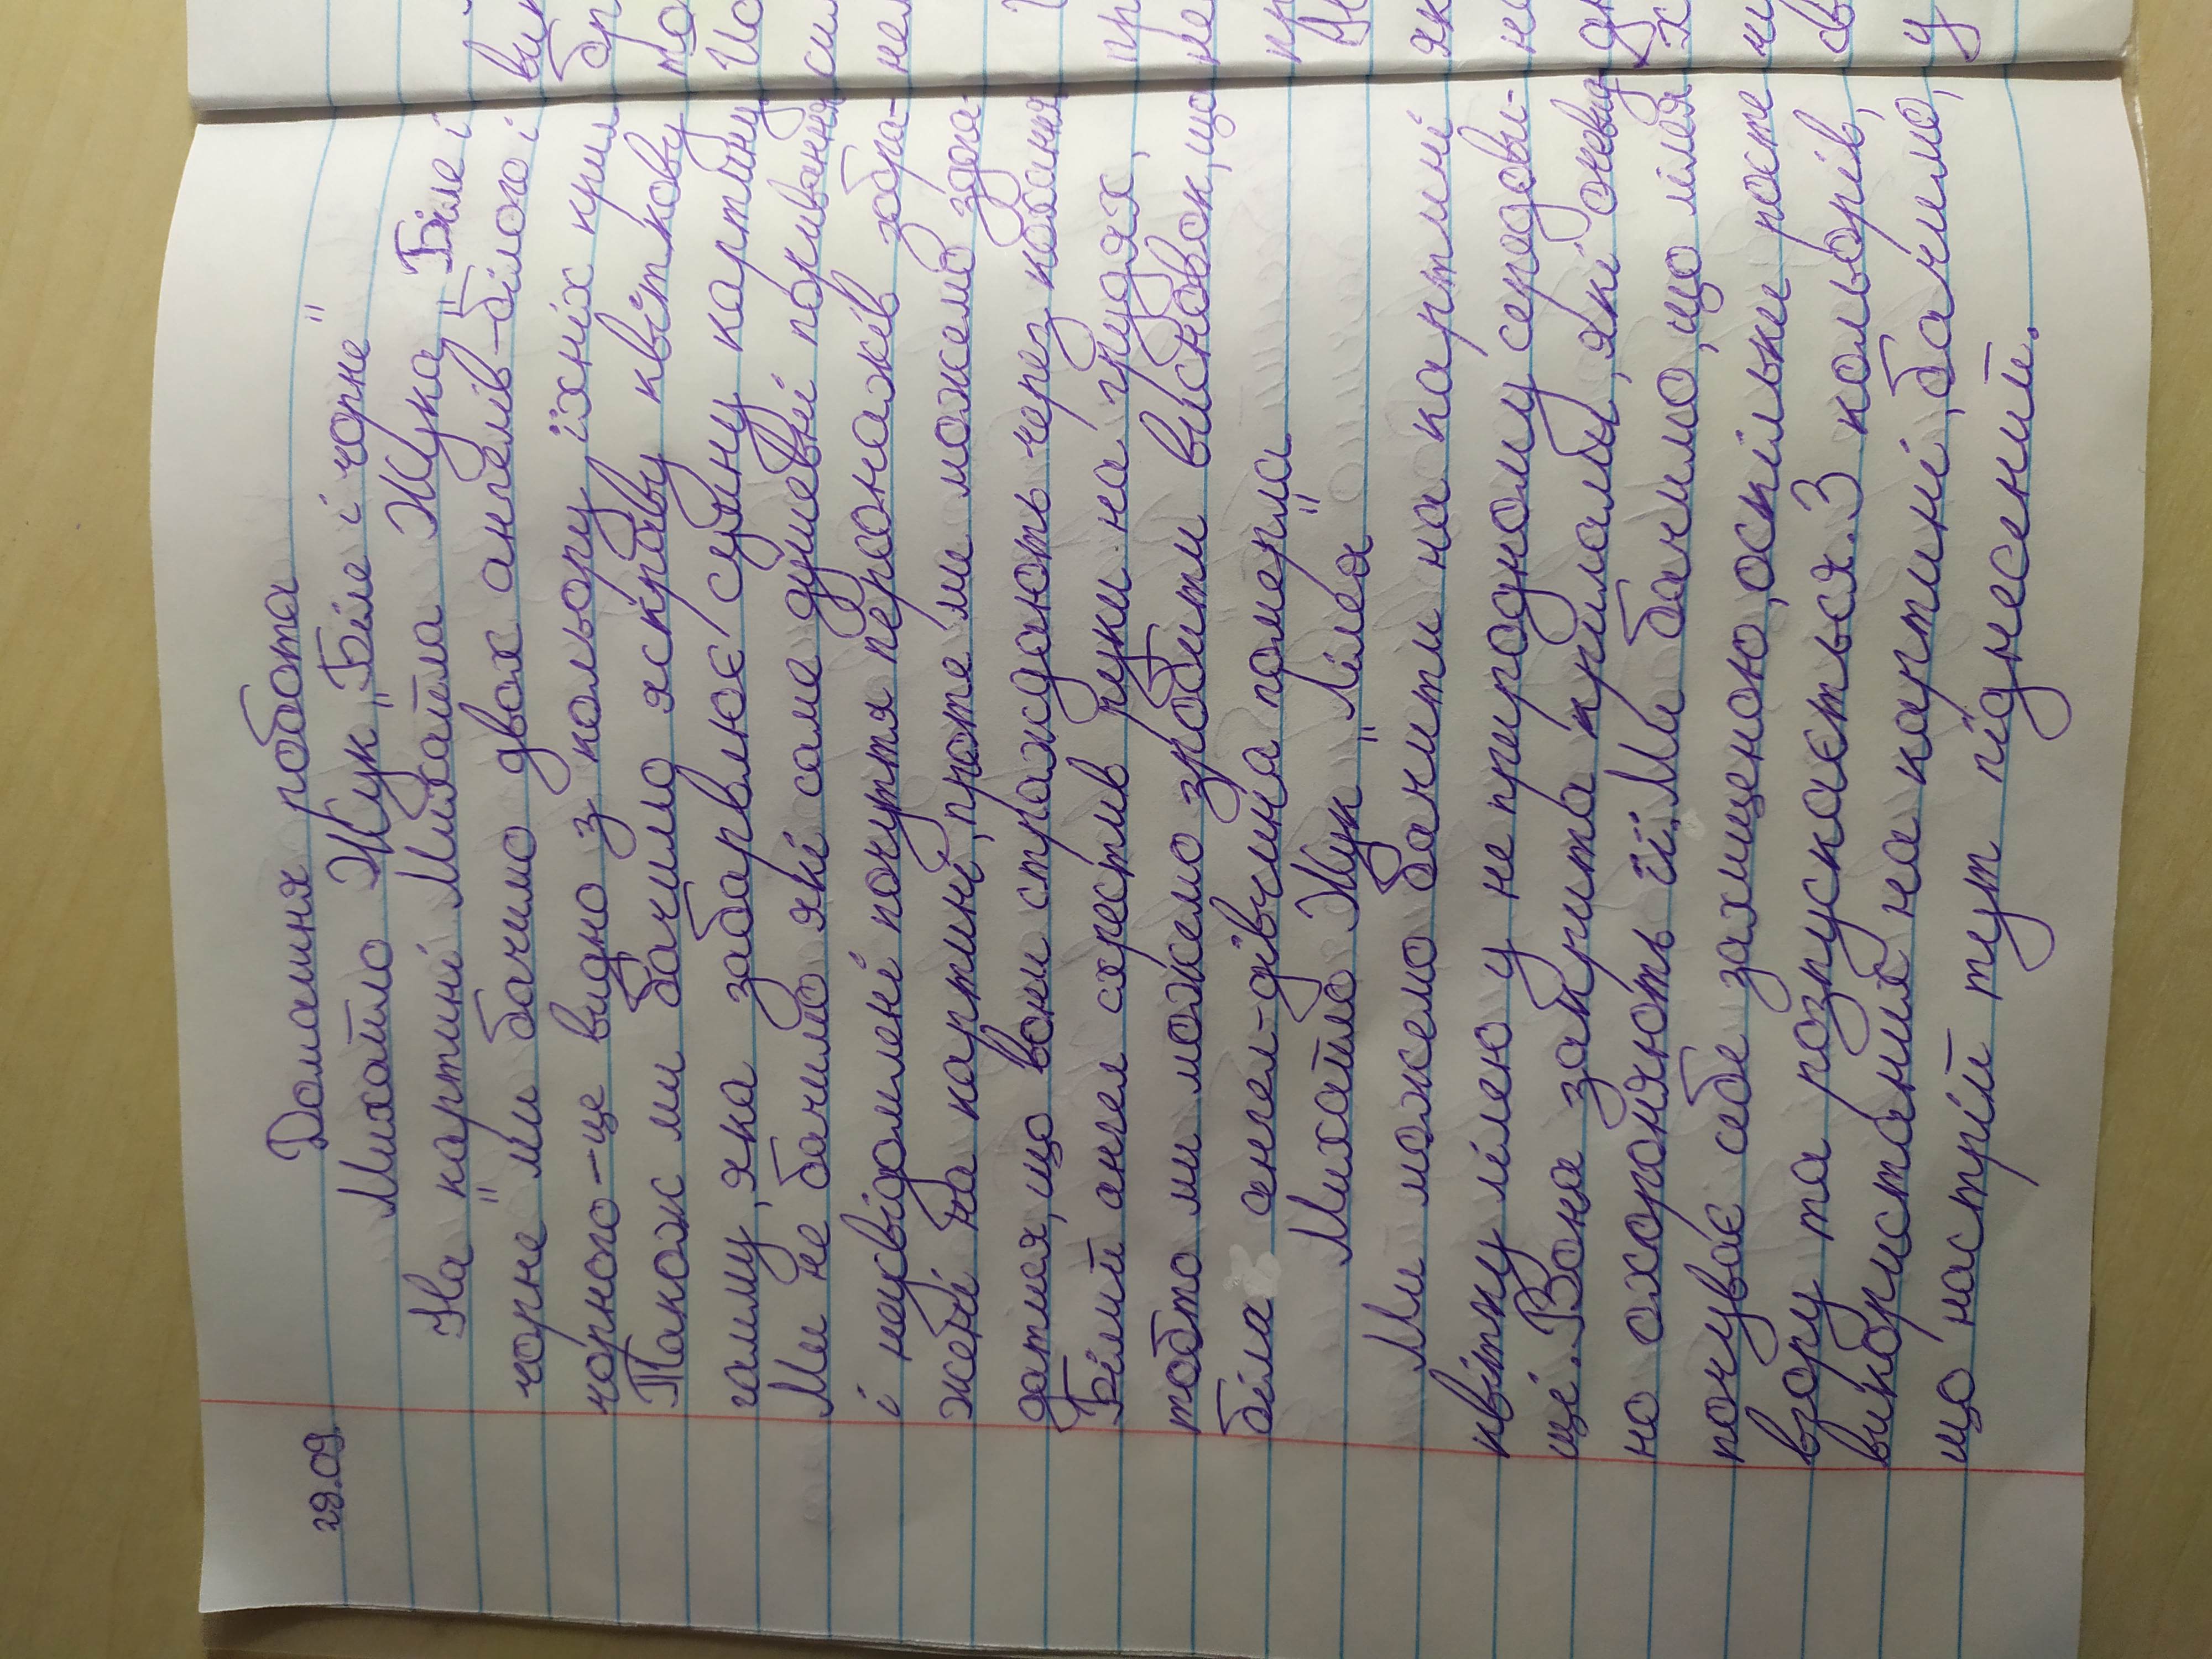 29.09.
Домашня робота
Михайло Жук „Біле і чорне"
На картині Михайла Жука „Біле і
чорне" ми бачимо двох ангелів-білого і
чорного-це видно з кольору їхніх крил
Також ми бачимо яскраву квіткову
гамму, яка забарвлює сумну картину
Ми не бачимо які саме душевні поривання
і неусвідомлені почуття персонажів зобра-
жені на картині, проте ми можемо здога-
датися, що вони страждають через кохання
Білий ангел схрестив руки на грудях,
тобто ми можемо зробити висновок, що
біла ангел-дівчина померла
Михайло Жук „Лілея"
Ми можемо бачити на картині
квітку лілею у не природному середови-
щі. Вона закрита крилами, які очевид-
но охороняють її. Ми бачимо, що лілея
почуває себе захищеною, оскільки росте
вгору та розпускається. З кольорів,
використаних на картині, бачимо,
що настрій тут піднесений.